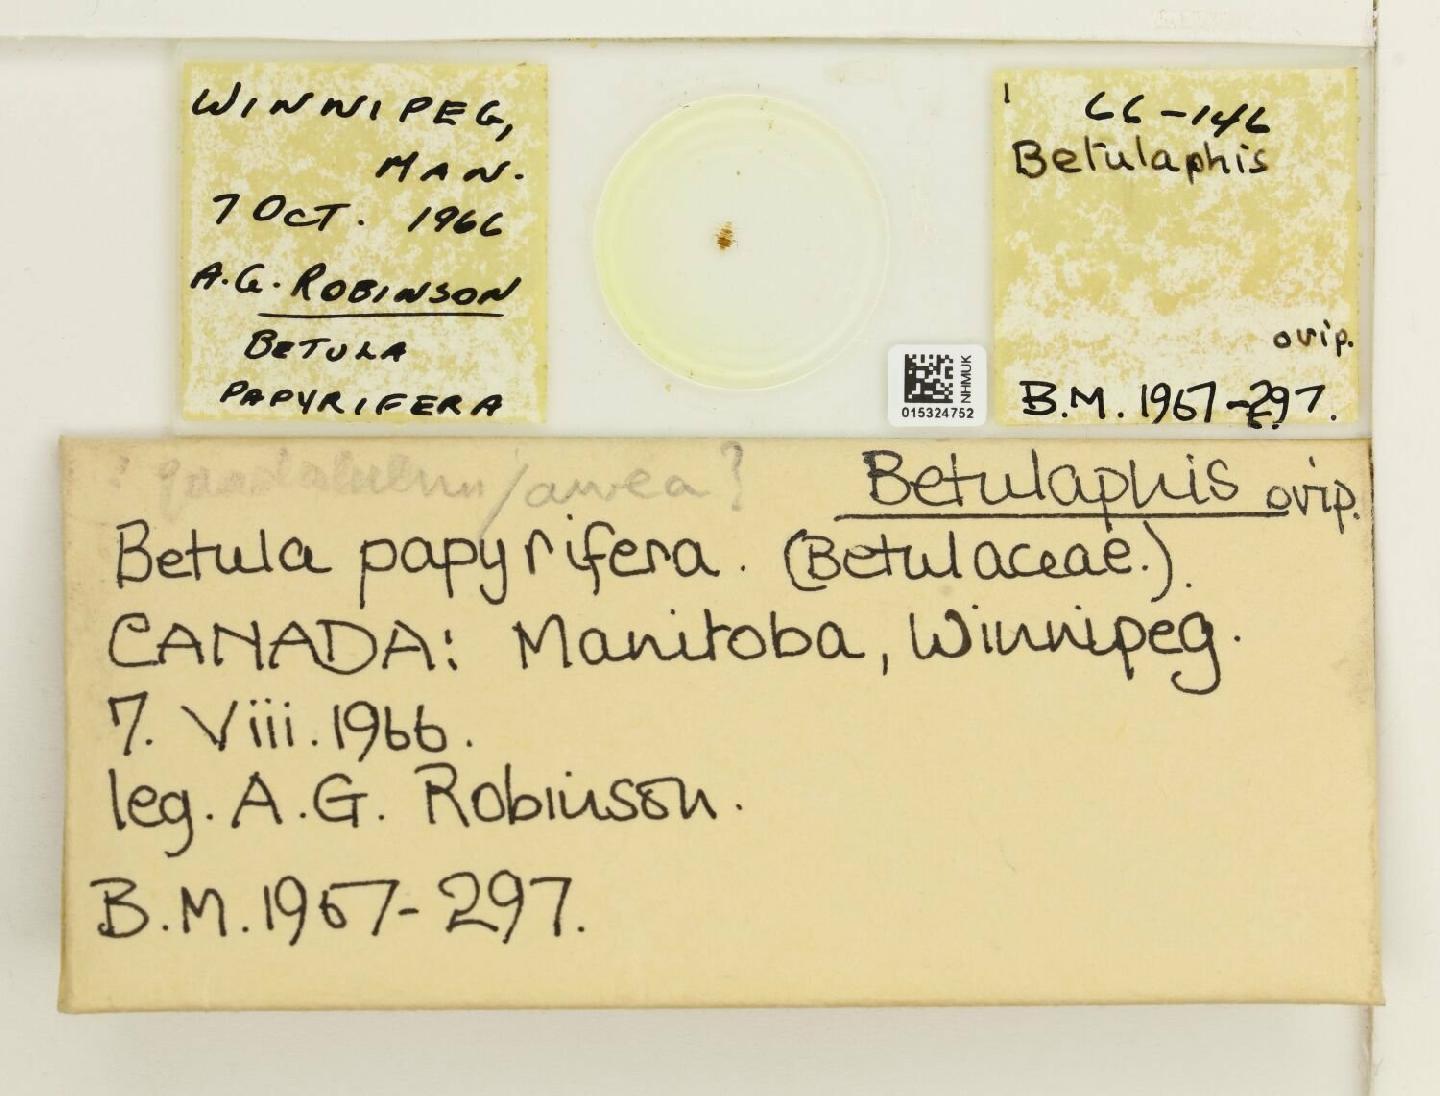 WINNIPEG,
MAN.
7 OCT. 1966
A.G. ROBINSON
BETULA
PAPYRIFERA
1
66-146
Betulaphis
ovip.
B.M. 1967-297.
NHMUK
015324752
?
Betulaphis ovip.
Betula papyrifera. (Betulaceae.).
CANADA: Manitoba, Winnipeg.
7. Viii. 1966.
leg. A.G. Robinson.
B.M. 1967-297.